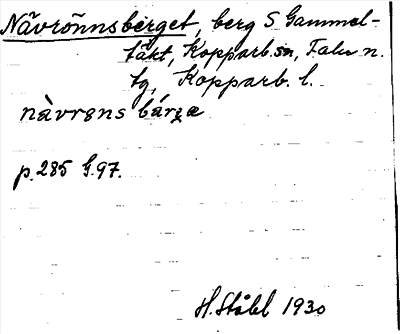 Nävrönnsberget, berg S Gammel-
täkt, Kopparb. sn, Falu n.
tg, Kopparb. l.
nàvrøns bárgæ
p. 285 G. 97.
H. Ståhl 1930